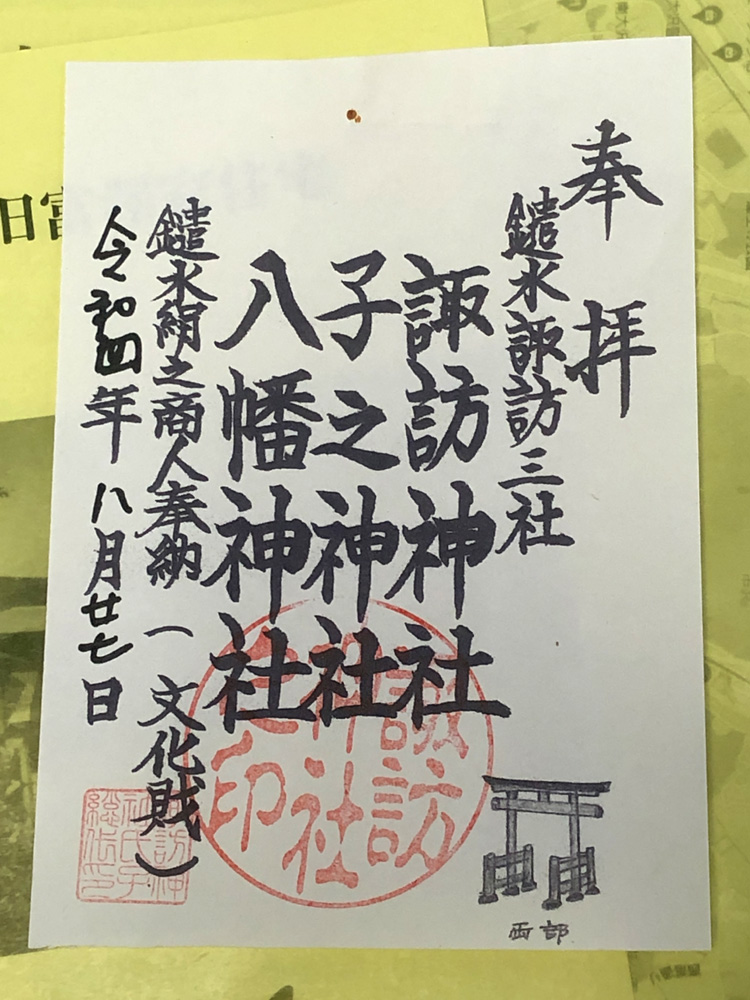 奉拝
鑓水諏訪三社
諏訪神社
子之神社
八幡神社
鑓水絹之商人奉納(文化財)
令和四年八月廿七日
諏訪
神社
之印
西部
旧富